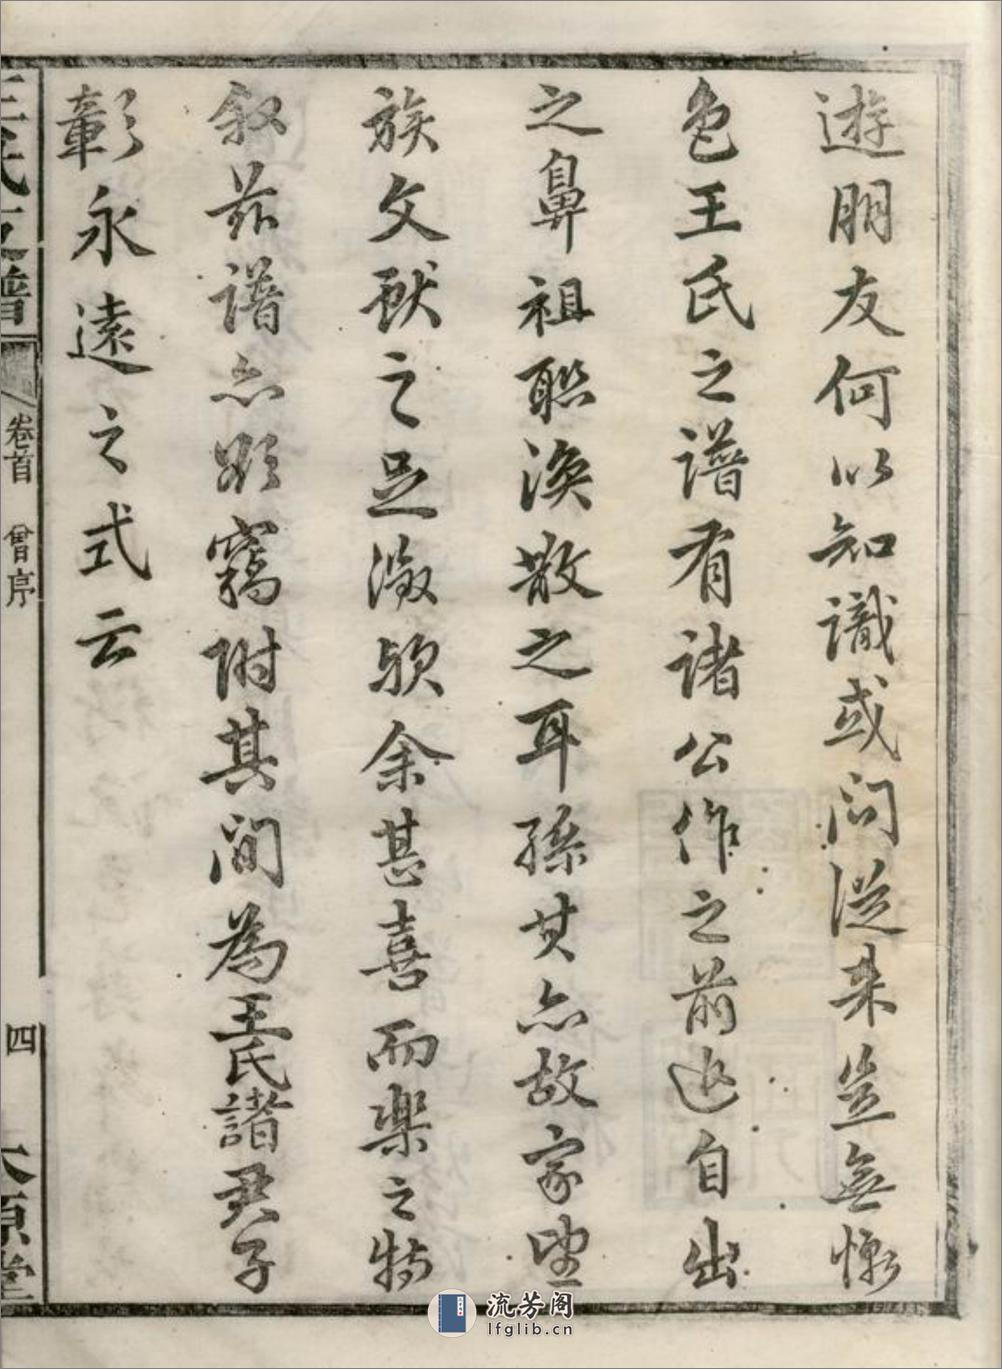 遊朋友何以知識或問從来豈無慚
色王氏之譜有諸公作之前追自出
之鼻祖聯渙散之耳孫其亦故家望
族文献之足徵欤余甚喜而樂之特
叙茲譜亦顯竊附其間為王氏諸君子
彰永遠之式云
王氏支譜
卷首 曾序
四
太原堂
流芳阁
lfglib.cn